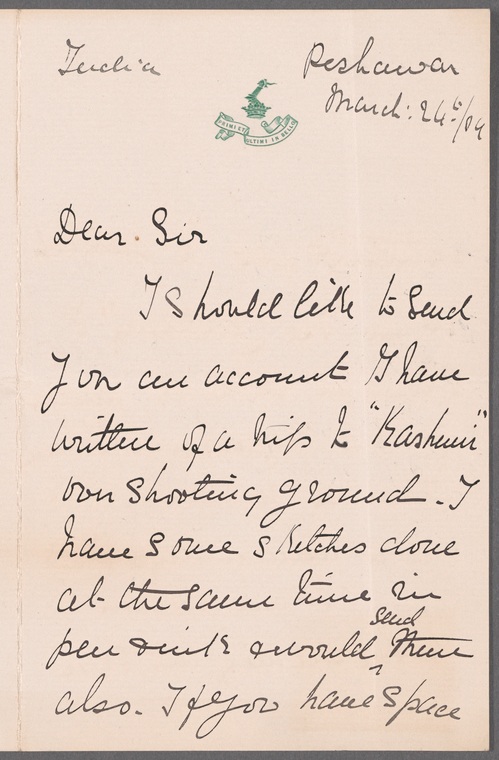 India
Peshawar
March: 24th/04
PRIMI ET ULTIMI IN BELLO
Dear Sir
I should like to send
you an account I have
written of a trip to "Kashmir"
our shooting ground. I
have some sketches done
at the same time in
pen & ink & would send them
also. If you have space